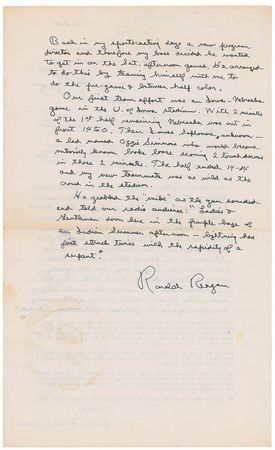 Back in my sportscasting days a new program
director and therefore my boss decided he wanted
to get in on the Sat. afternoon games. He arranged
to do this by teaming himself with me to
do the pre-game & between half color.
Our first team effort was an Iowa - Nebraska
game in the U. of Iowa stadium. With 2 minutes
of the 1st half remaining Nebraska was out in
front 14 to 0. Then Iowas Sophomore, unknown -
a lad named Ozzie Simmons who would become
nationally known broke loose scoring 2 touchdowns
in those 2 minutes. The half ended 14-14
and my new teammate was as wild as the
crowd in the stadium.
He grabbed the "mike" as the gun sounded
and told our radio audience: "Ladies &
Gentlemen down here in the purple haze of
an Indian Summer afternoon - lightning has
just struck twice with the rapidity of a
serpent."
Ronald Reagan